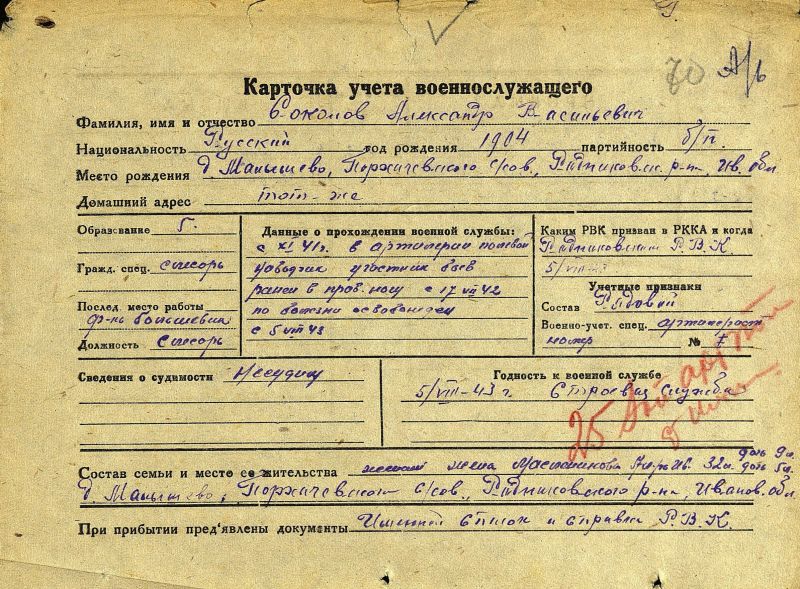 70 А/ь
Карточка учета военнослужащего
Фамилия, имя и отчество Соколов Александр Васильевич
Национальность Русский год рождения 1904 партийность б/п.
Место рождения д. Малышево, Поржачевского с/сов., Родниковск. р-на, Ив. обл
Домашний адрес тот-же
Образование 5.
Гражд. спец. слесарь
Послед. место работы
ф-ка большевик
Должность слесарь
Данные о прохождении военной службы:
с XI 41г. в артилерии полевой
наводчик участник боев
ранен в прав. ногу с 17 VII 42
по болезни освобожден
с 5 VIII 43
Каким РВК призван в РККА и когда
Родниковским Р.В.К.
5/VIII-43
Учетные признаки
Состав Рядовой
Военно-учет. спец. артилерист
номер № 1
Сведения о судимости Несудим
Годность к военной службе
5/VIII-43 г. Строевая служба
25
Состав семьи и место ее жительства жена 32 г. дочь 9 л. дочь 5 л.
д. Малышево, Поржачевского с/сов., Родниковского р-на, Иванов. обл
При прибытии пред'явлены документы Именной список и справка Р.В.К.